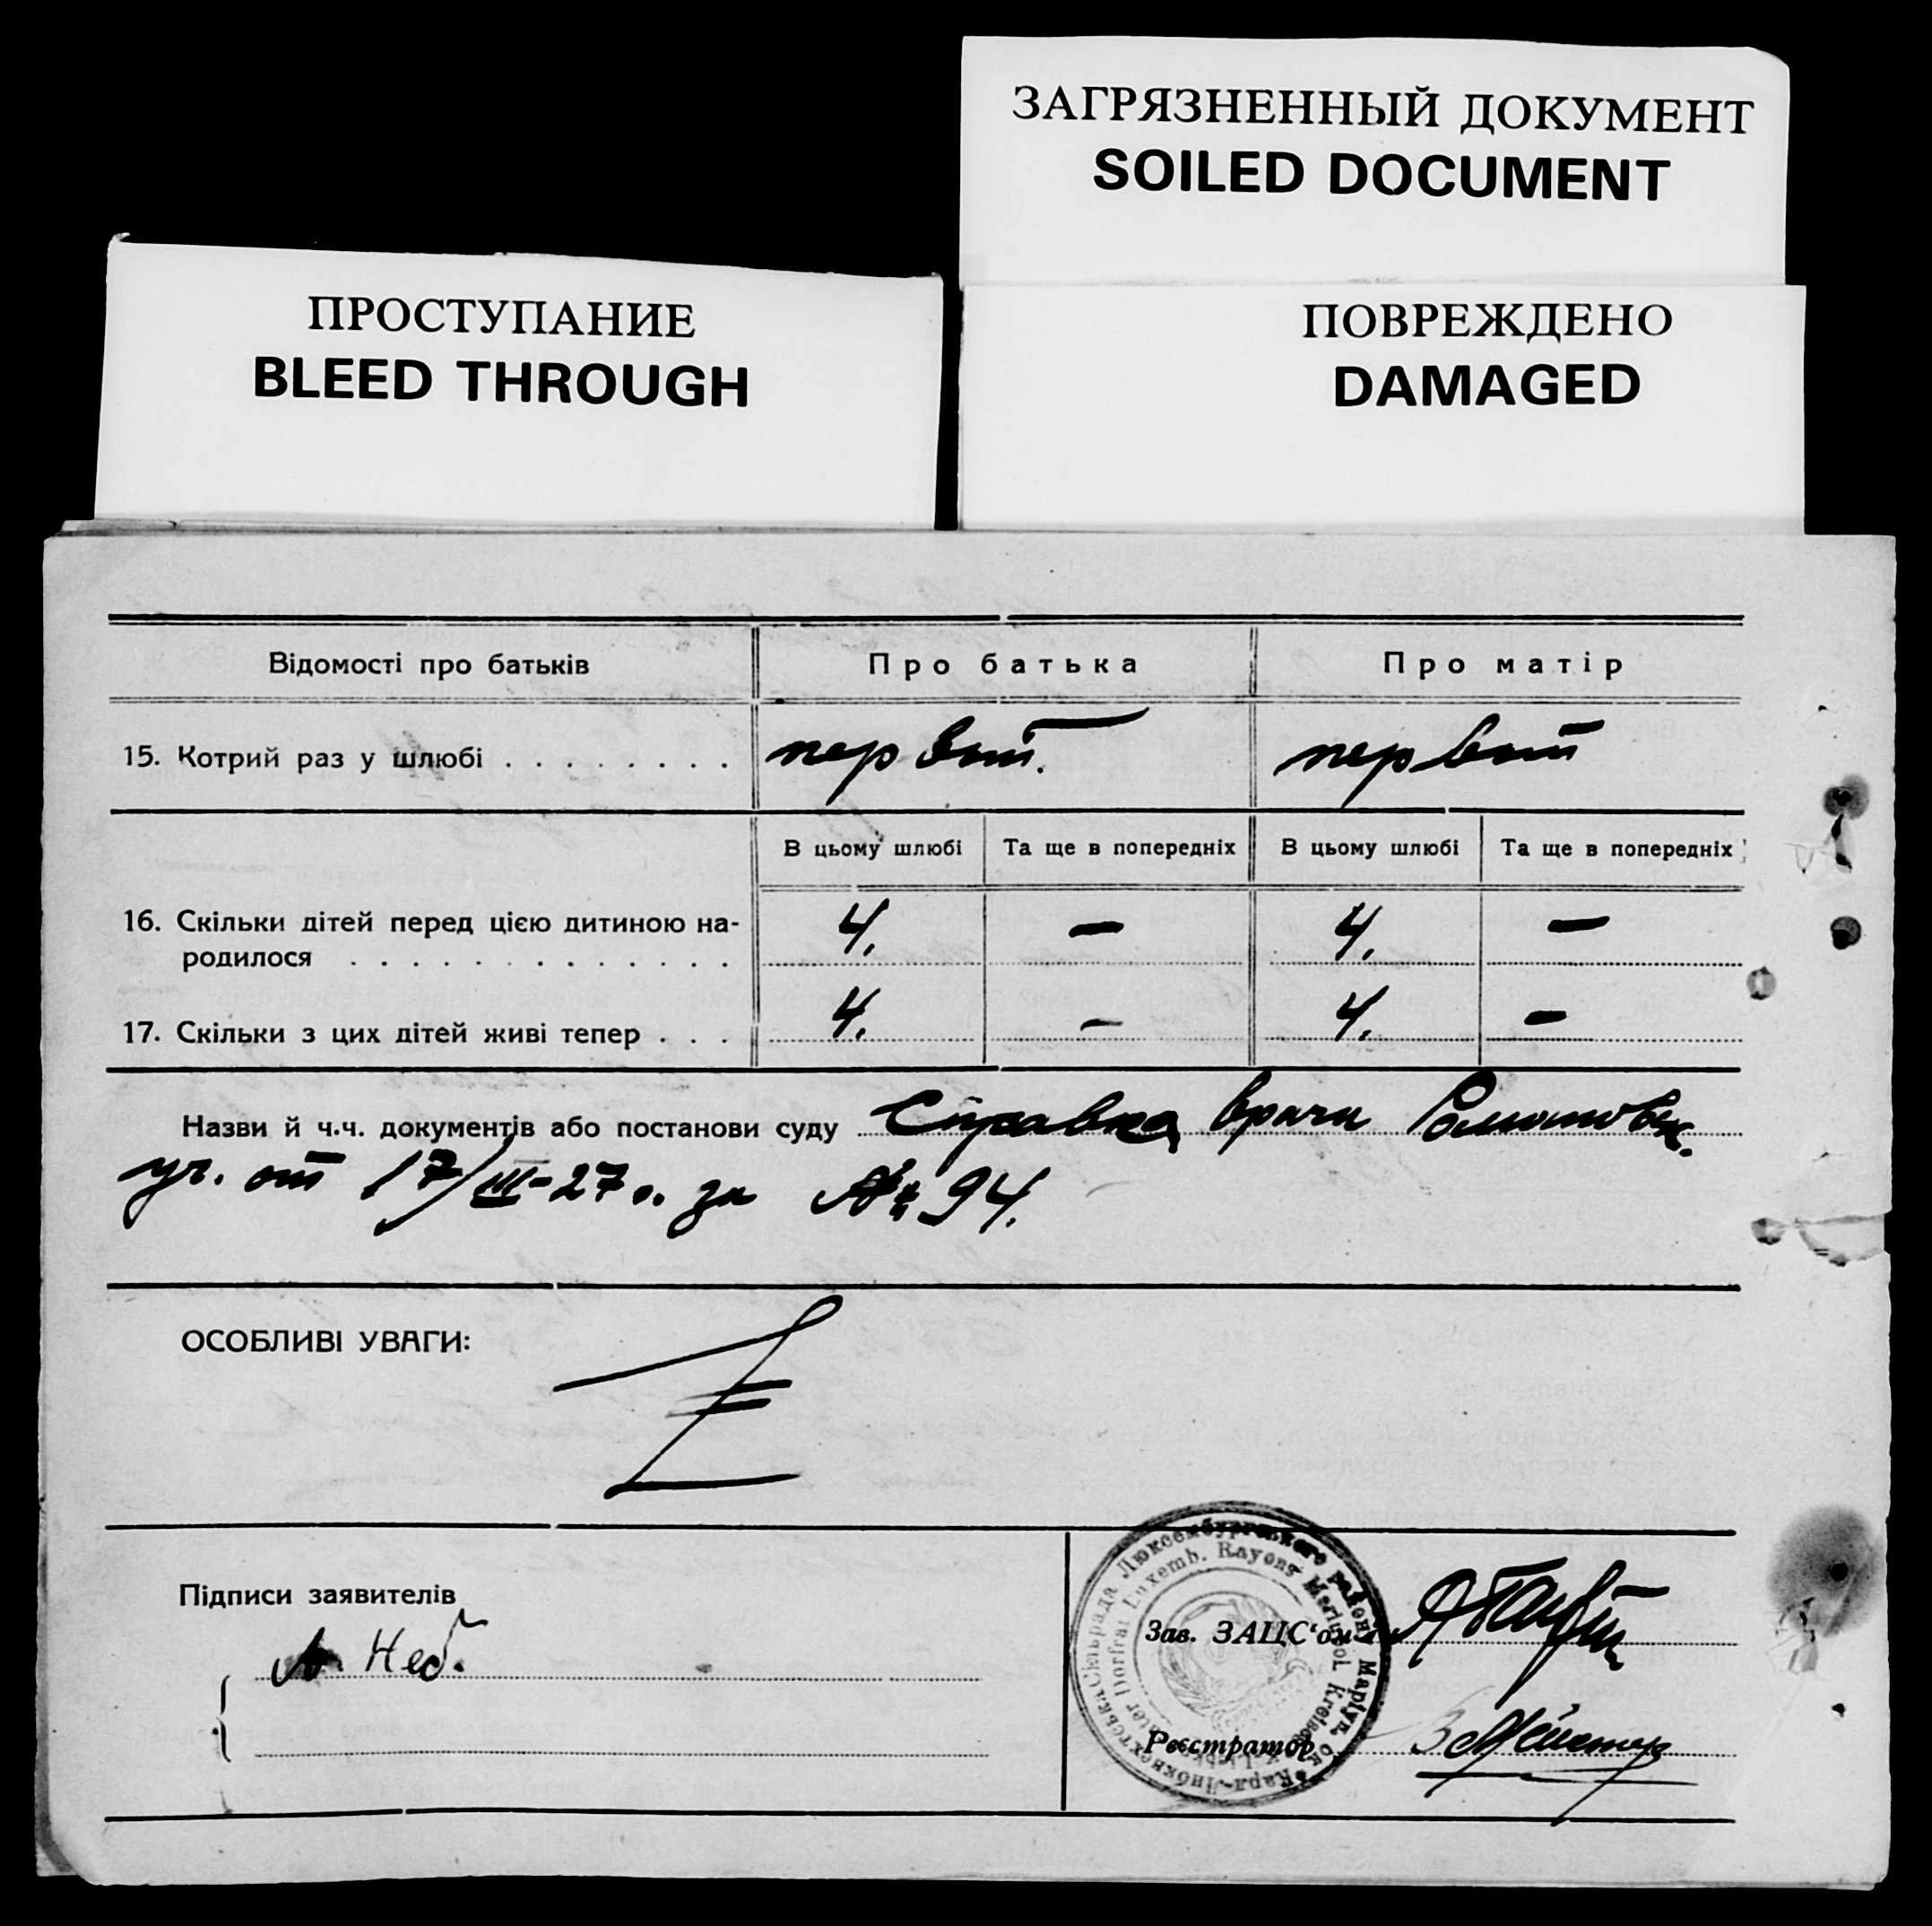 ЗАГРЯЗНЕННЫЙ ДОКУМЕНТ
SOILED DOCUMENT
ПРОСТУПАНИЕ
BLEED THROUGH
ПОВРЕЖДЕНО
DAMAGED
Відомості про батьків Про батька Про матір
15. Котрий раз у шлюбі первый. первый
В цьому шлюбі Та ще в попередніх В цьому шлюбі Та ще в попередніх
16. Скільки дітей перед цією дитиною на-
родилося 4. — 4. —
17. Скільки з цих дітей живі тепер 4. — 4. —
Назви й ч.ч. документів або постанови суду Справка врача Романовск.
уч. от 17/III-27 г. за № 94.
ОСОБЛИВІ УВАГИ:
Підписи заявителів
Неб.
Зав. ЗАЦС'ом
Реєстратор
Карл-Лібкнехтська Сільрада Люксембургського району Маріуп. ок.
Dorfrat Luxemb. Rayons Mariupol Kreises